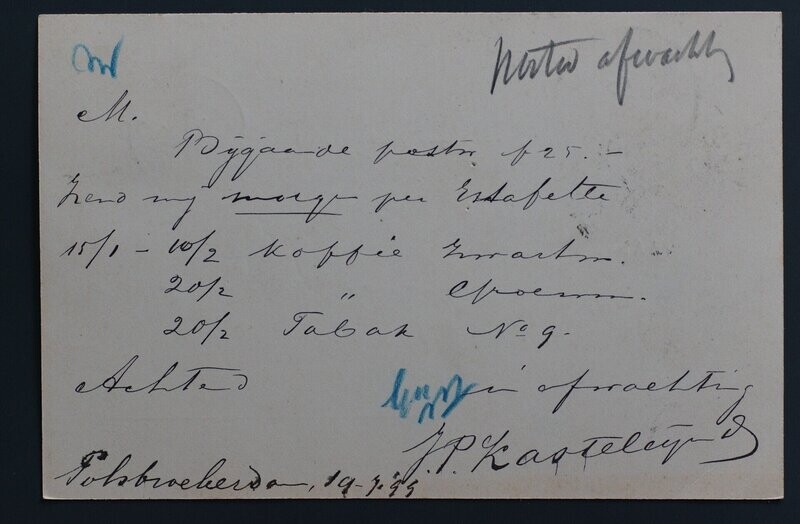 afwachtg
M.
Bijgaande postw f 25.-
Zend mij morgen per Estafette
15/1 - 10/2 Koffie Zwartm.
20/2 " Groenm.
20/2 Tabak No 9.
Achtend in afwachting
J.P. Kasteleijn
Polsbroekerdam, 19-7.99